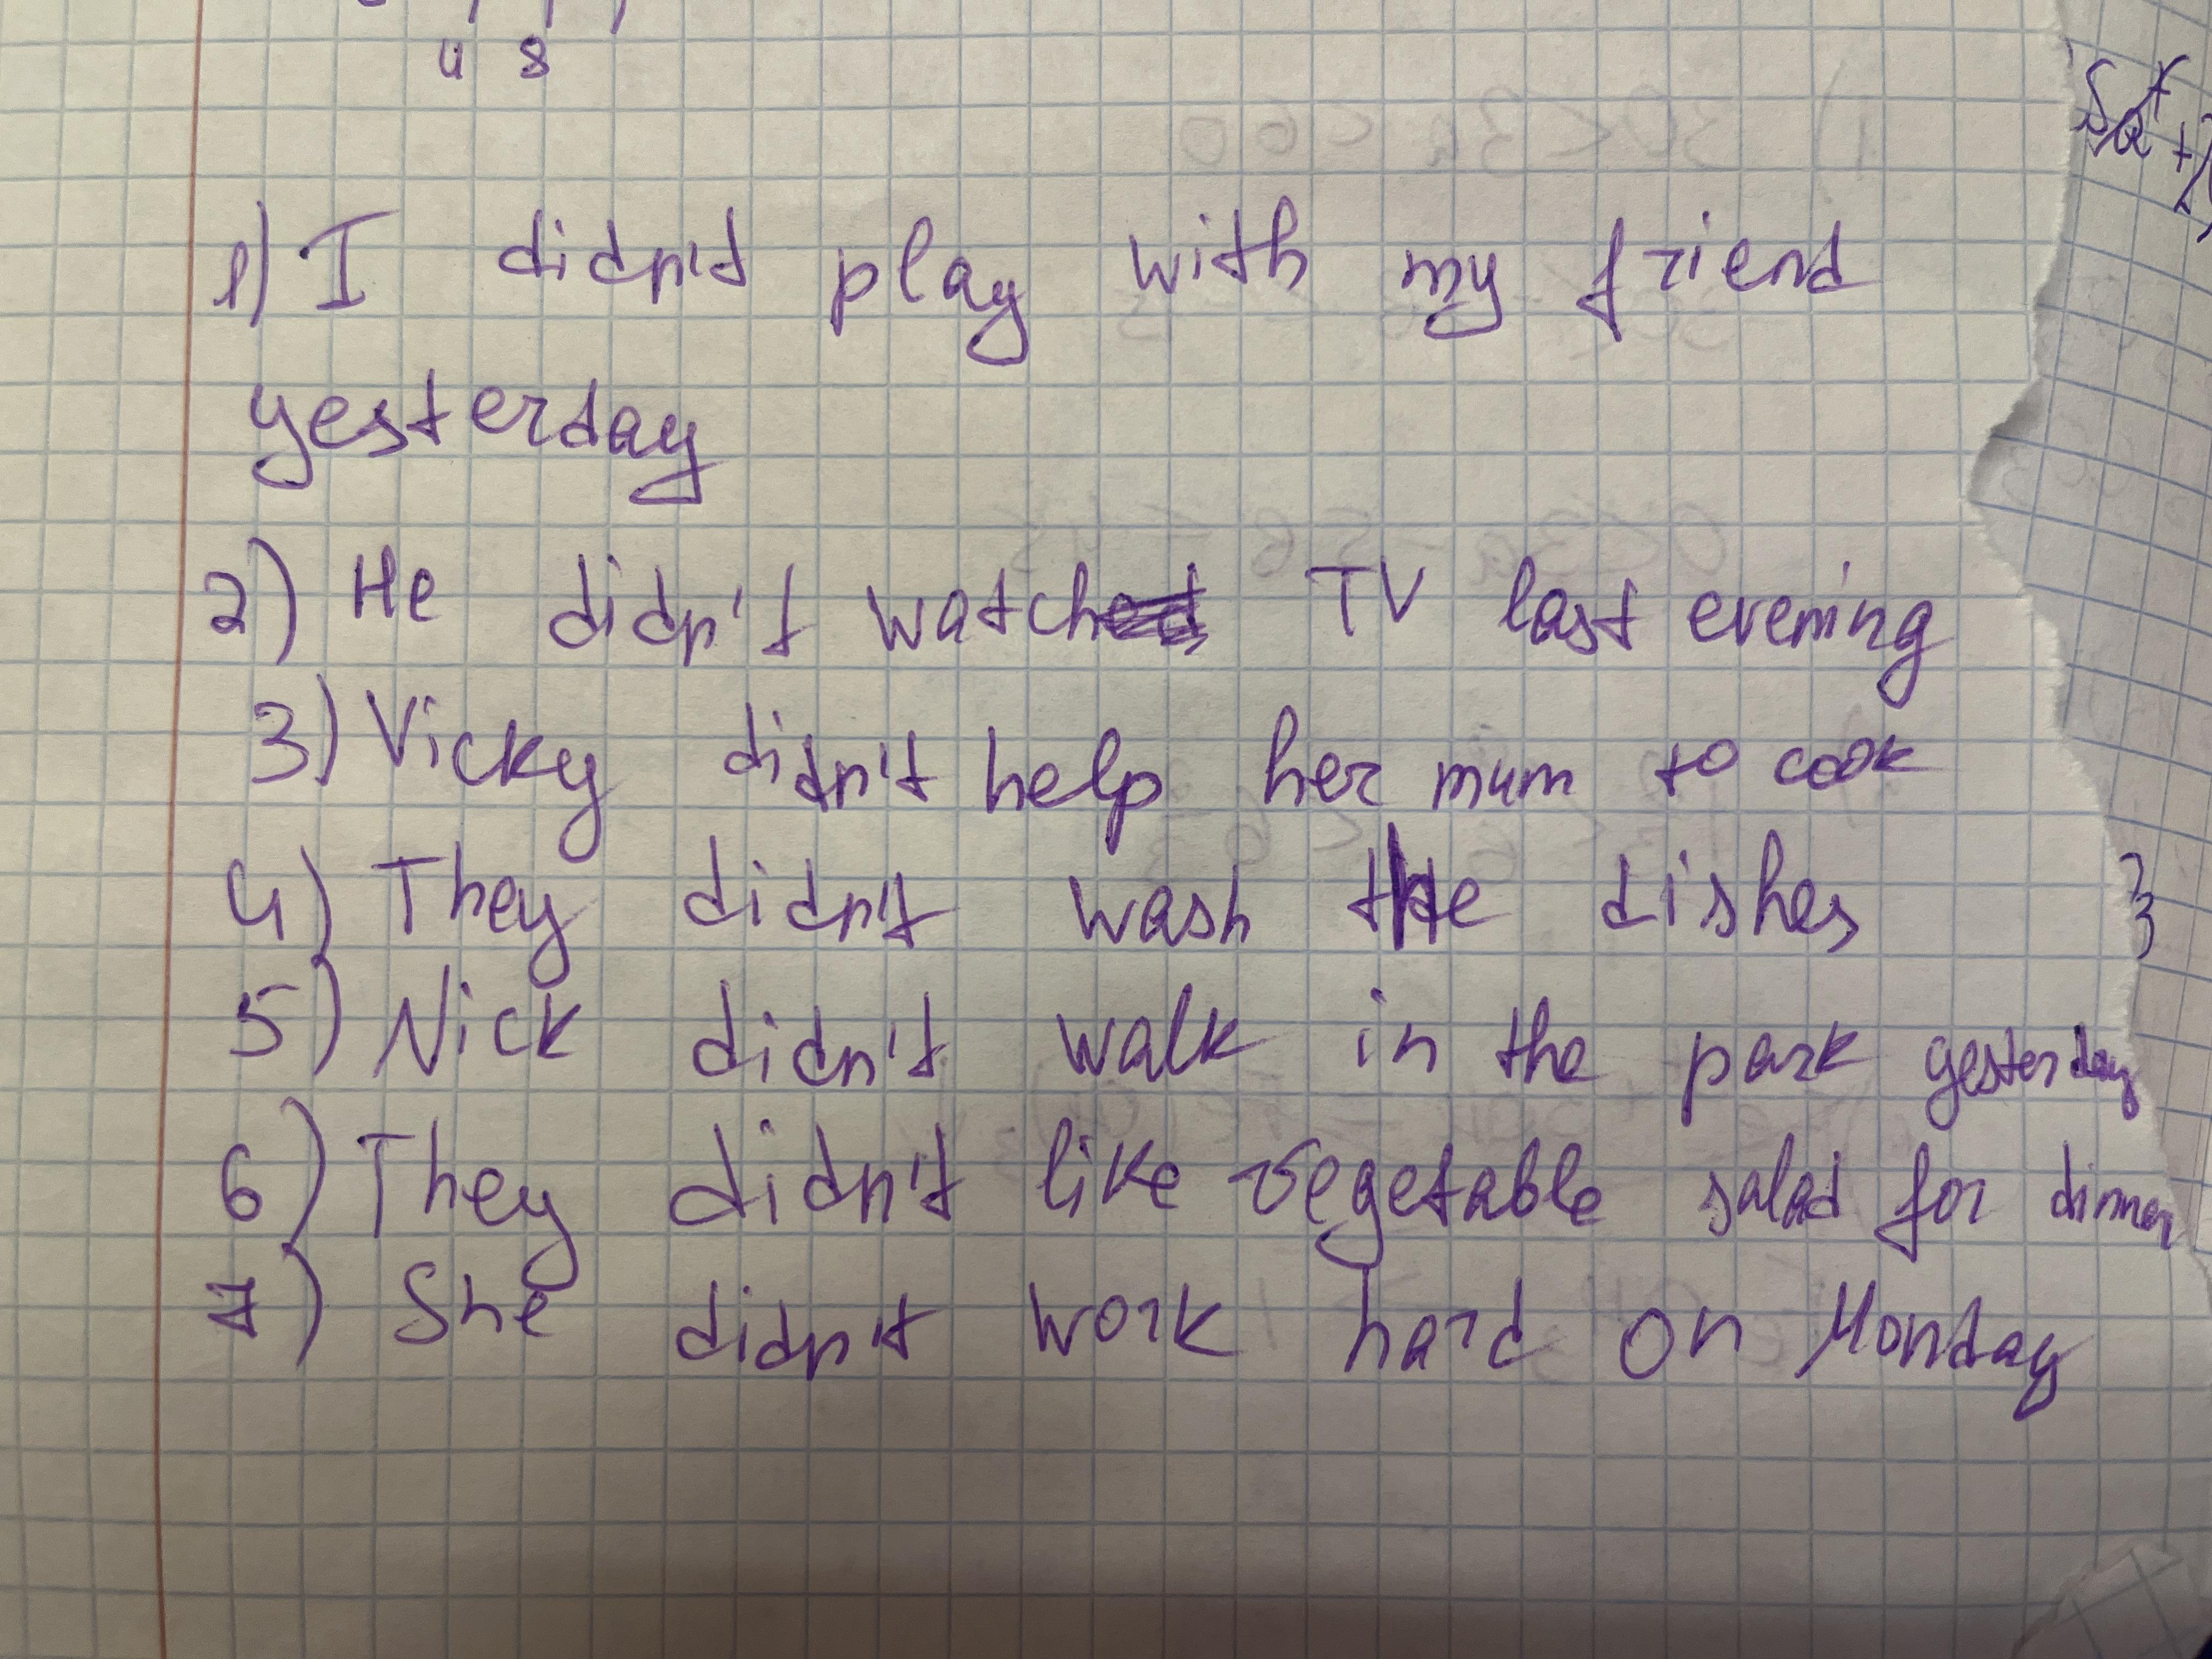 4 8
1) I didn't play with my friend
yesterday
2) He didn't watch TV last evening
3) Vicky didn't help her mum to cook
4) They didn't wash the dishes
5) Nick didn't walk in the park yesterday
6) They didn't like vegetable salad for dinner
7) She didn't work hard on Monday